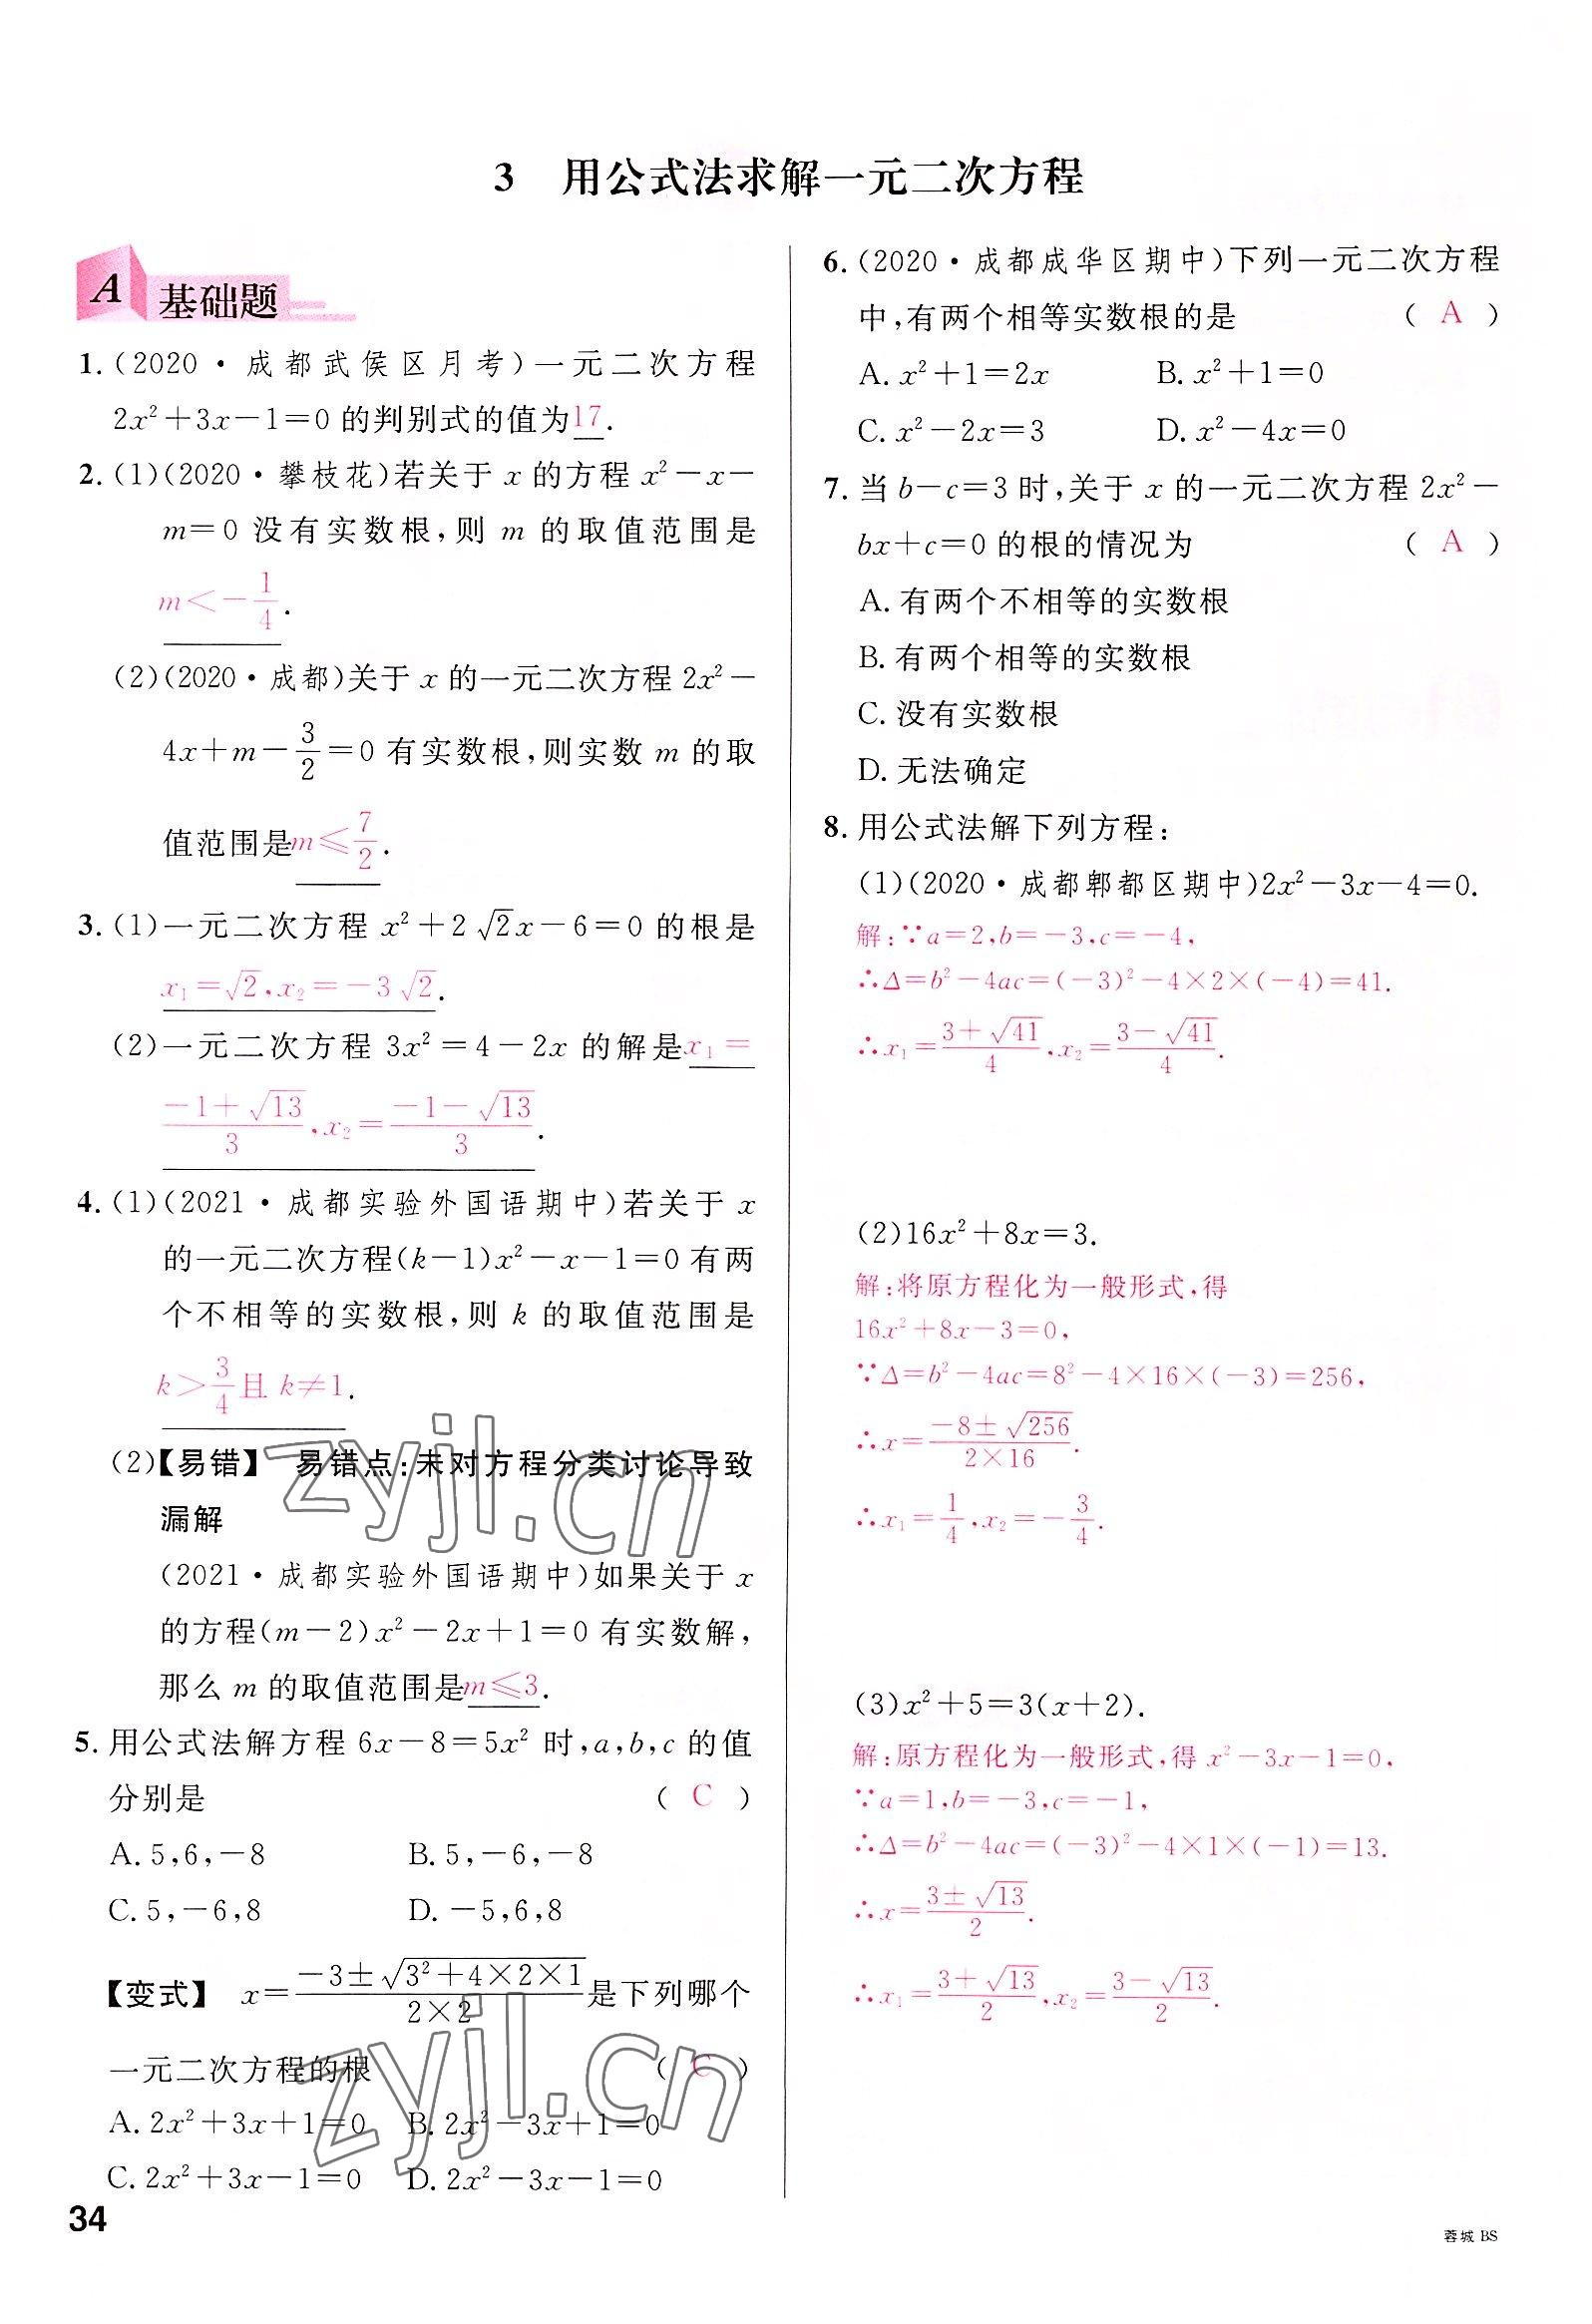 3 用公式法求解一元二次方程
A 基础题
1.(2020·成都武侯区月考)一元二次方程
2x²+3x-1=0 的判别式的值为17.
2.(1)(2020·攀枝花)若关于 x 的方程 x²-x-
m=0 没有实数根,则 m 的取值范围是
m<-1/4.
(2)(2020·成都)关于 x 的一元二次方程 2x²-
4x+m-3/2=0 有实数根,则实数 m 的取
值范围是m≤7/2.
3.(1)一元二次方程 x²+2√2x-6=0 的根是
x₁=√2,x₂=-3√2.
(2)一元二次方程 3x²=4-2x 的解是x₁=
(-1+√13)/3,x₂=(-1-√13)/3.
4.(1)(2021·成都实验外国语期中)若关于 x
的一元二次方程(k-1)x²-x-1=0 有两
个不相等的实数根,则 k 的取值范围是
k>3/4且 k≠1.
(2)【易错】 易错点:未对方程分类讨论导致
漏解
(2021·成都实验外国语期中)如果关于 x
的方程(m-2)x²-2x+1=0 有实数解,
那么 m 的取值范围是m≤3.
5.用公式法解方程 6x-8=5x² 时,a,b,c 的值
分别是 ( C )
A.5,6,-8 B.5,-6,-8
C.5,-6,8 D.-5,6,8
【变式】 x=(-3±√(3²+4×2×1))/(2×2)是下列哪个
一元二次方程的根 ( C )
A.2x²+3x+1=0 B.2x²-3x+1=0
C.2x²+3x-1=0 D.2x²-3x-1=0
34
6.(2020·成都成华区期中)下列一元二次方程
中,有两个相等实数根的是 ( A )
A.x²+1=2x B.x²+1=0
C.x²-2x=3 D.x²-4x=0
7.当 b-c=3 时,关于 x 的一元二次方程 2x²-
bx+c=0 的根的情况为 ( A )
A.有两个不相等的实数根
B.有两个相等的实数根
C.没有实数根
D.无法确定
8.用公式法解下列方程:
(1)(2020·成都郫都区期中)2x²-3x-4=0.
解:∵a=2,b=-3,c=-4,
∴Δ=b²-4ac=(-3)²-4×2×(-4)=41.
∴x₁=(3+√41)/4,x₂=(3-√41)/4.
(2)16x²+8x=3.
解:将原方程化为一般形式,得
16x²+8x-3=0,
∵Δ=b²-4ac=8²-4×16×(-3)=256,
∴x=(-8±√256)/(2×16).
∴x₁=1/4,x₂=-3/4.
(3)x²+5=3(x+2).
解:原方程化为一般形式,得 x²-3x-1=0,
∵a=1,b=-3,c=-1,
∴Δ=b²-4ac=(-3)²-4×1×(-1)=13.
∴x=(3±√13)/2.
∴x₁=(3+√13)/2,x₂=(3-√13)/2.
蓉城 BS
zyjl.cn
zyjl.cn